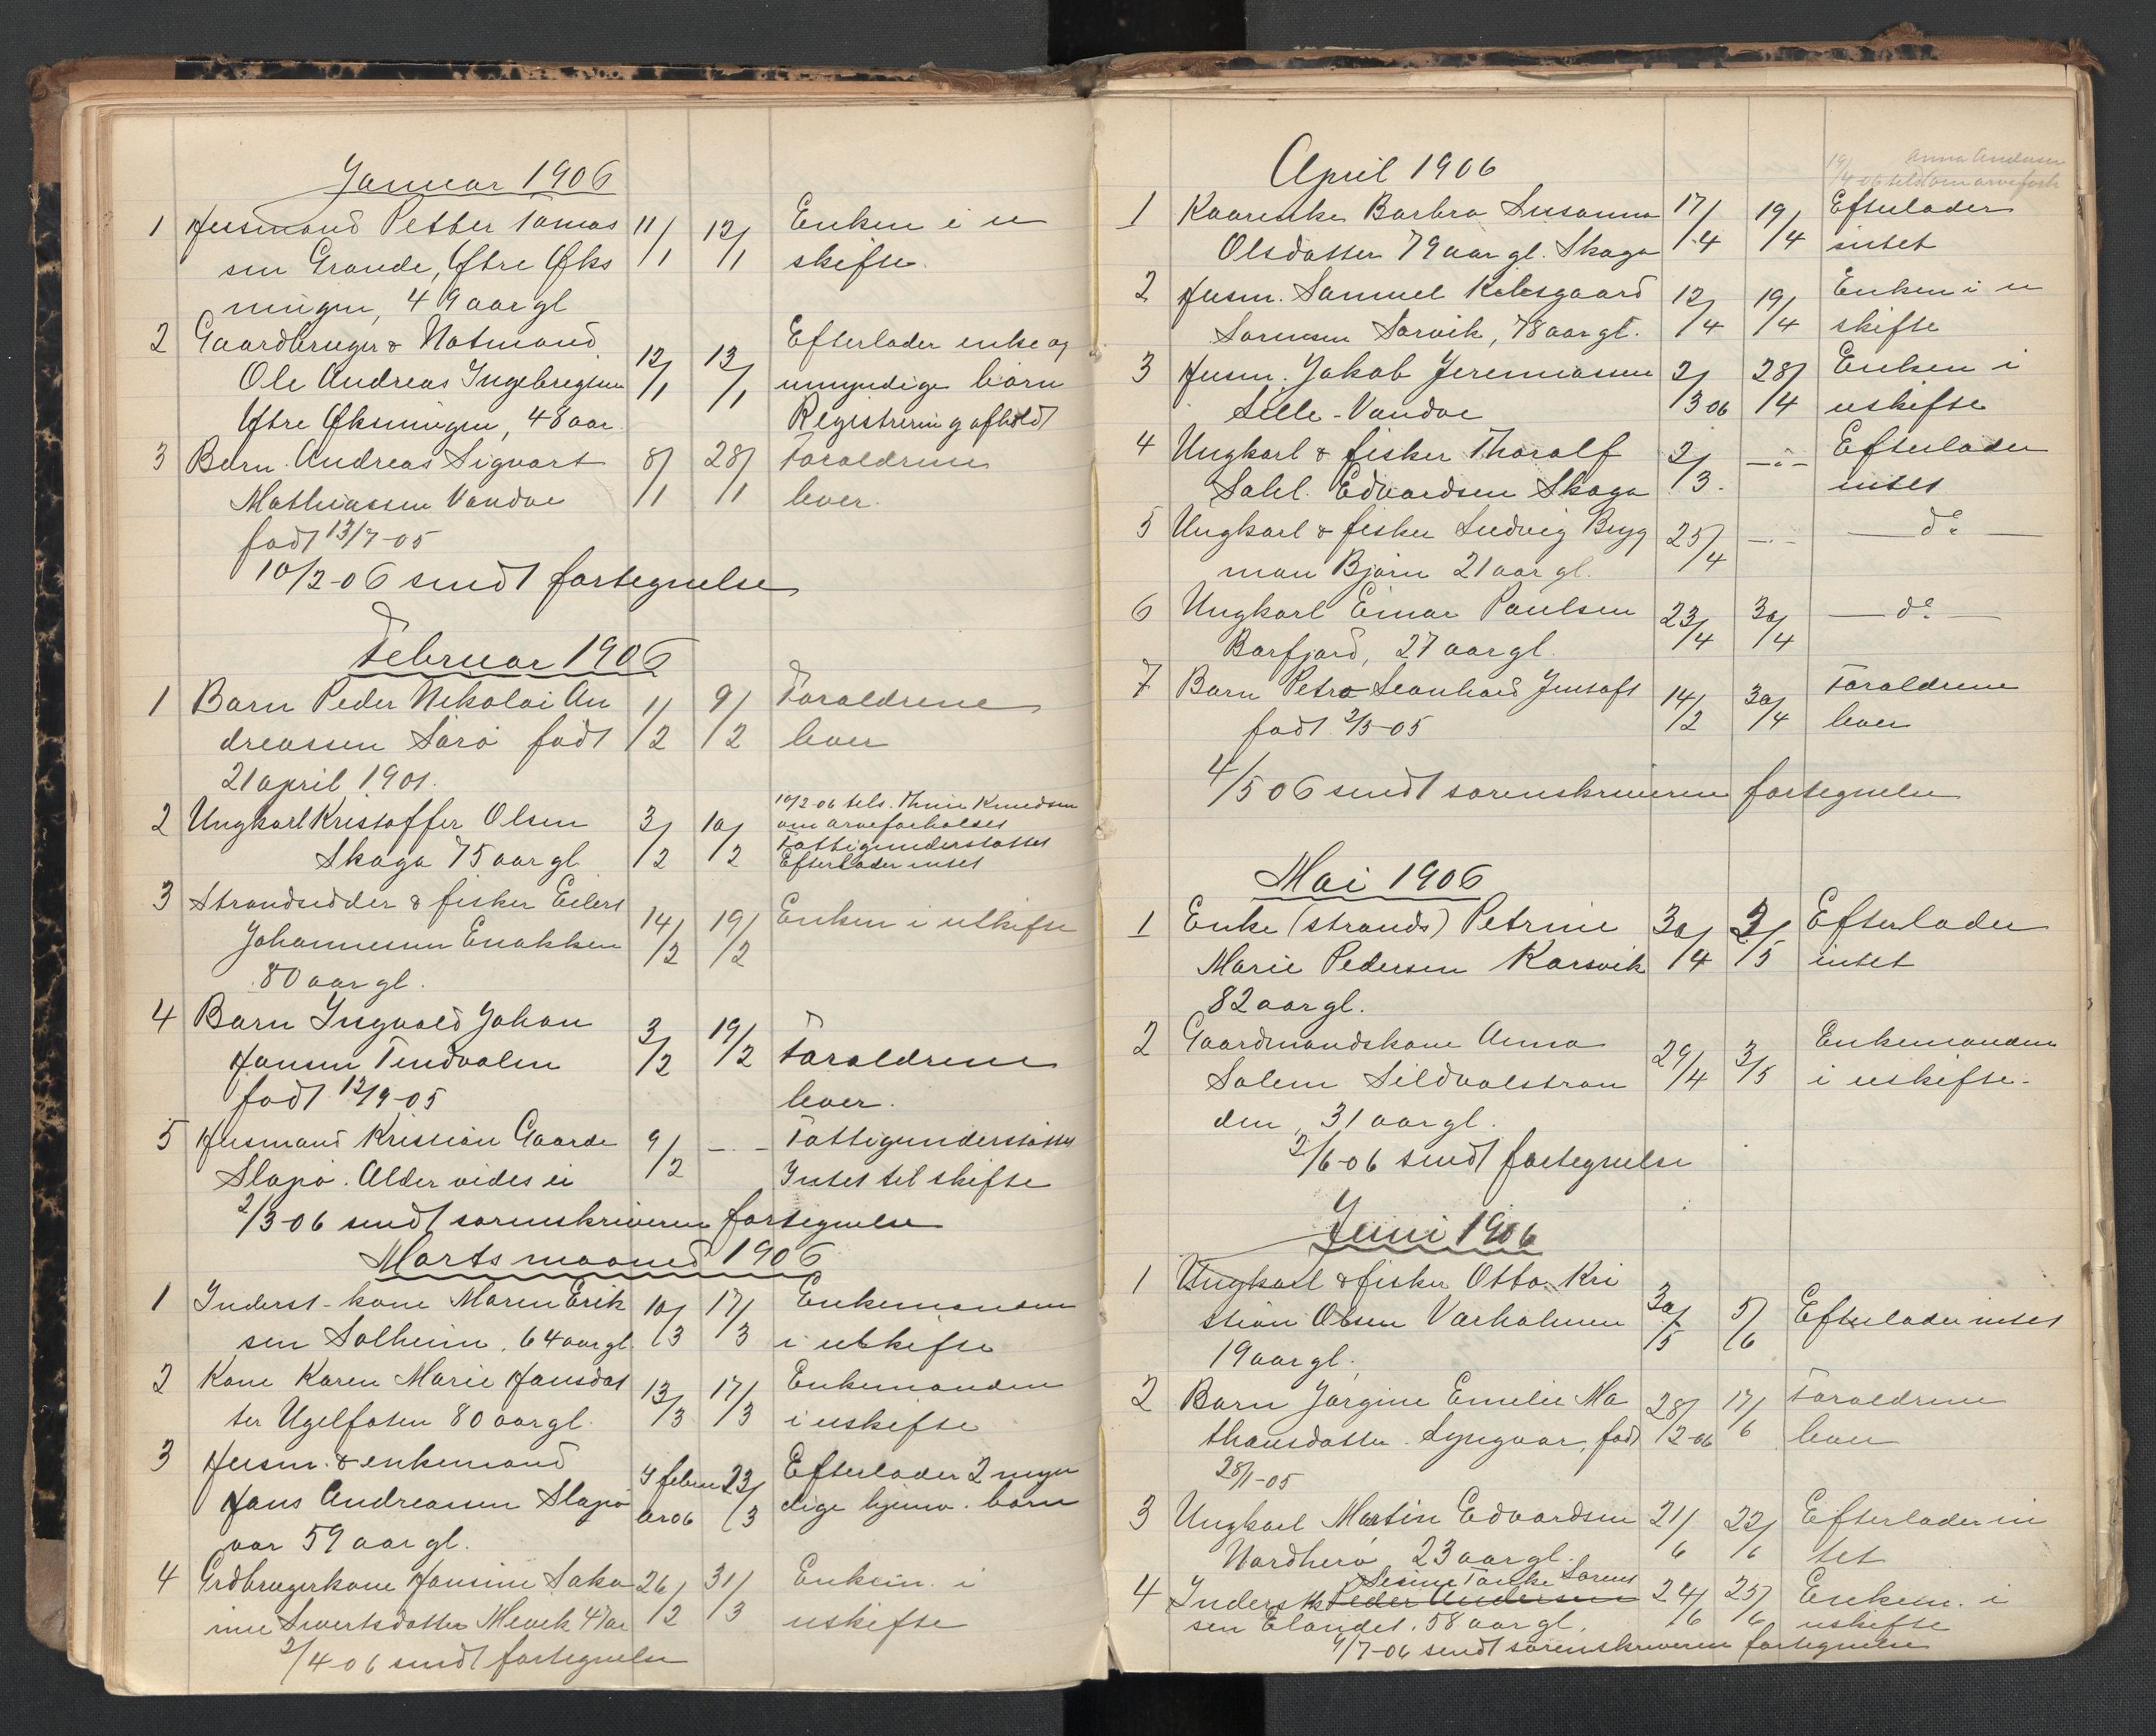 Januar 1906
1 Husmand Petter Tomas 11/1 12/1 Enken i u
sen Grande, Yttre Øks skifte.
ningen, 49 aar gl
2 Gaardbruger & Notmand Efterlader enke og
Ole Andreas Ingebregtsen 12/1 13/1 umyndige børn
Yttre Øksningen, 48 aar. Registrering afholdt
3 Barn Andreas Sigvart 8/1 28/1 Foraldrene
Mathiassen Vandve lever.
født 13/7-05
10/2-06 sendt fortegnelse
Februar 1906
1 Barn Peder Nikolai An 1/2 9/2 Foraldrene
dreassen Sørø født lever
21 april 1901.
2 Ungkarl Kristoffer Olsen 3/2 10/2 10/2 06 tels. Knudsen
om arveforholdet
Skaga 75 aar gl Fattigunderstøttet
Efterlader intet
3 Strandsidder & fisker Eilert
Johannesen Enokken 14/2 19/2 Enken i uskifte
80 aar gl.
4 Barn Ingvald Johan 3/2 19/2
Hansen Tendvalen Foraldrene
født 12/9-05 lever.
5 Husmand Kristian Gaarde 9/2 -"- Fattigunderstøttet
Slapø. Alder vides ei Intet til skifte
2/3-06 sendt sorenskriveren fortegnelse
Marts maaned 1906
1 Inderst-kone Maren Erik 10/3 17/3 Enkemanden
sen Solheim, 64 aar gl. i uskifte
2 Kone Karen Marie Hansdat 13/3 17/3 Enkemanden
ter Ugelfoten 80 aar gl. i uskifte
3 Husm. & enkemand Efterlader 2 myn
Hans Andreassen Slapø 23/3 dige hjemv. børn
var 59 aar gl.
4 Grdbrugerkone Hansine Jako 26/2 31/3 Enkem. i
ine Sivertsdatter Mevik 47 aar uskifte
2/4-06 sendt fortegnelse
April 1906
Anna Andersen
19/4-06 om arveforh
1 Kaarenke Barbra Susanna 17/4 19/4 Efterlader
Olsdatter 79 aar gl. Skaga intet
2 Husm. Samuel Kolsgaard 12/4 19/4 Enken i u
Sørensen Sørvik, 78 aar gl. skifte
3 Husm. Jakob Jeremiassen 2/3 06 28/4 Enken i
Lille-Vandve uskifte
4 Ungkarl & fisker Thoralf 2/3 -"- Efterlader
Edvardsen Skaga intet
5 Ungkarl & fisker Ludvig Bryg 25/4 -"- do
man Bjørn 21 aar gl.
6 Ungkarl Einar Paulsen 23/4 30/4 do
Barfjord, 27 aar gl.
7 Barn Petra Leonhard Jentoft 14/2 30/4 Foraldrene
født 2/5-05 lever
4/5 06 sendt sorenskriveren fortegnelse
Mai 1906
1 Enke (strands) Petrine 30/4 3/5 Efterlader
Marie Pedersen Korsvik intet
82 aar gl.
2 Gaardmandskone Anna 29/4 3/5 Enkemanden
Solem Sildvalstran i uskifte.
den, 31 aar gl.
2/6-06 sendt fortegnelse
Juni 1906
1 Ungkarl & fisker Otto Kri
stian Olsen Varholmen 30/5 5/6 Efterlader intet
19 aar gl.
2 Barn Jørgine Emelie Ma 28/2-06 17/6 Foraldrene
thansdatter. Lyngvær, født lever
28/1-05
3 Ungkarl Martin Edvardsen 21/6 22/6 Efterlader in
Nordherø 23 aar gl. tet
Sørens
4 Inderstk Peder Andersen 24/6 25/6 Enkem. i
sen Elandet. 58 aar gl. uskifte
9/7-06 sendt sorenskriveren fortegnelse